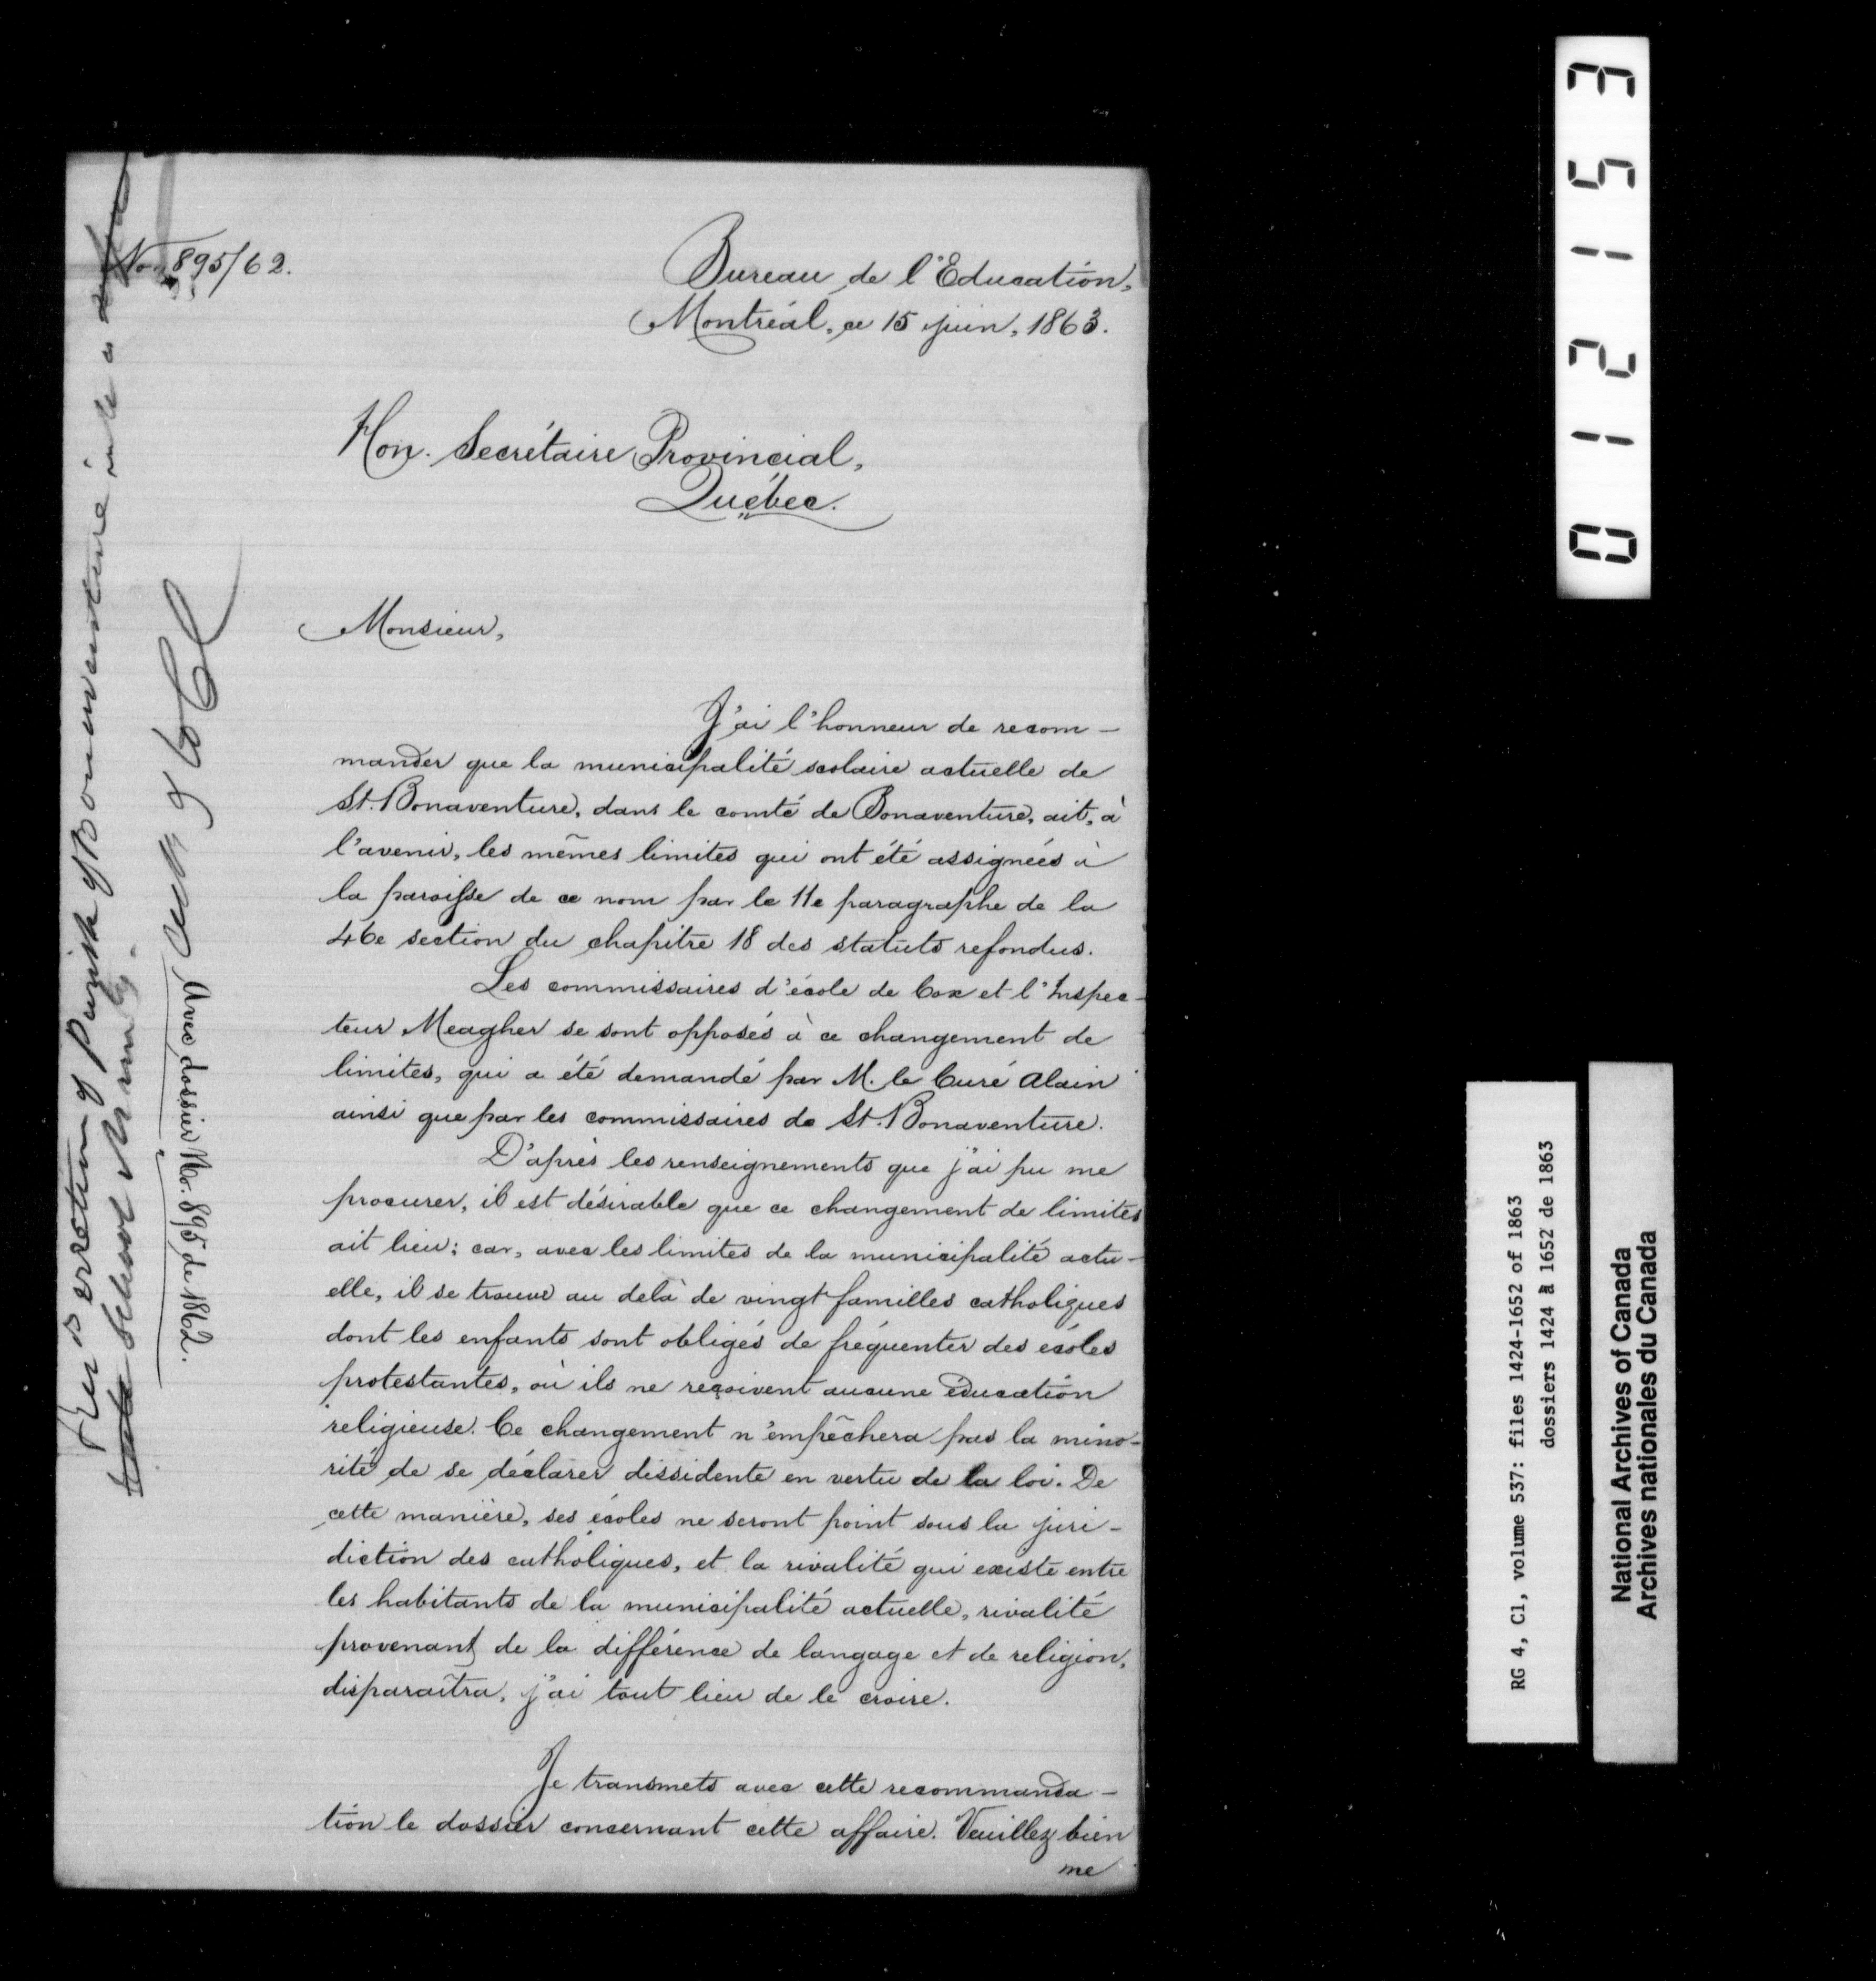 No. 895/62.
Bureau de l'Education,
Montréal, ce 15 juin, 1863.
Hon. Secrétaire Provincial,
Québec.
Monsieur,
J'ai l'honneur de recom-
mander que la municipalité scolaire actuelle de
St. Bonaventure, dans le comté de Bonaventure, ait, à
l'avenir, les mêmes limites qui ont été assignées à
la paroisse de ce nom par le 11e paragraphe de la
46e section du chapitre 18 des statuts refondus.
Les commissaires d'école de Cox et l'Inspec-
teur Meagher se sont opposés à ce changement de
limites, qui a été demandé par M. le Curé Alain
ainsi que par les commissaires de St. Bonaventure.
D'après les renseignements que j'ai pu me
procurer, il est désirable que ce changement de limites
ait lieu; car, avec les limites de la municipalité actu-
elle, il se trouve au delà de vingt familles catholiques
dont les enfants sont obligés de fréquenter des écoles
protestantes, où ils ne reçoivent aucune éducation
religieuse. Ce changement n'empêchera pas la mino-
rité de se déclarer dissidente en vertu de la loi. De
cette manière, ses écoles ne seront point sous la juri-
diction des catholiques, et la rivalité qui existe entre
les habitants de la municipalité actuelle, rivalité
provenant de la différence de langage et de religion,
disparaîtra, j'ai tout lieu de le croire.
Je transmets avec cette recommanda-
tion le dossier concernant cette affaire. Veuillez bien
me
erection of Parish of Bonaventure into a
School
Avec dossier No. 895 de 1862.
012153
RG 4, C1, volume 537: files 1424-1652 of 1863
dossiers 1424 à 1652 de 1863
National Archives of Canada
Archives nationales du Canada